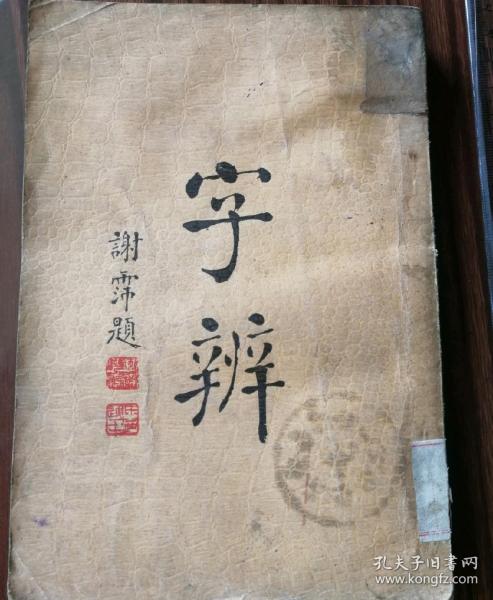 字辨
謝霈題
孔夫子旧书网
www.kongfz.com